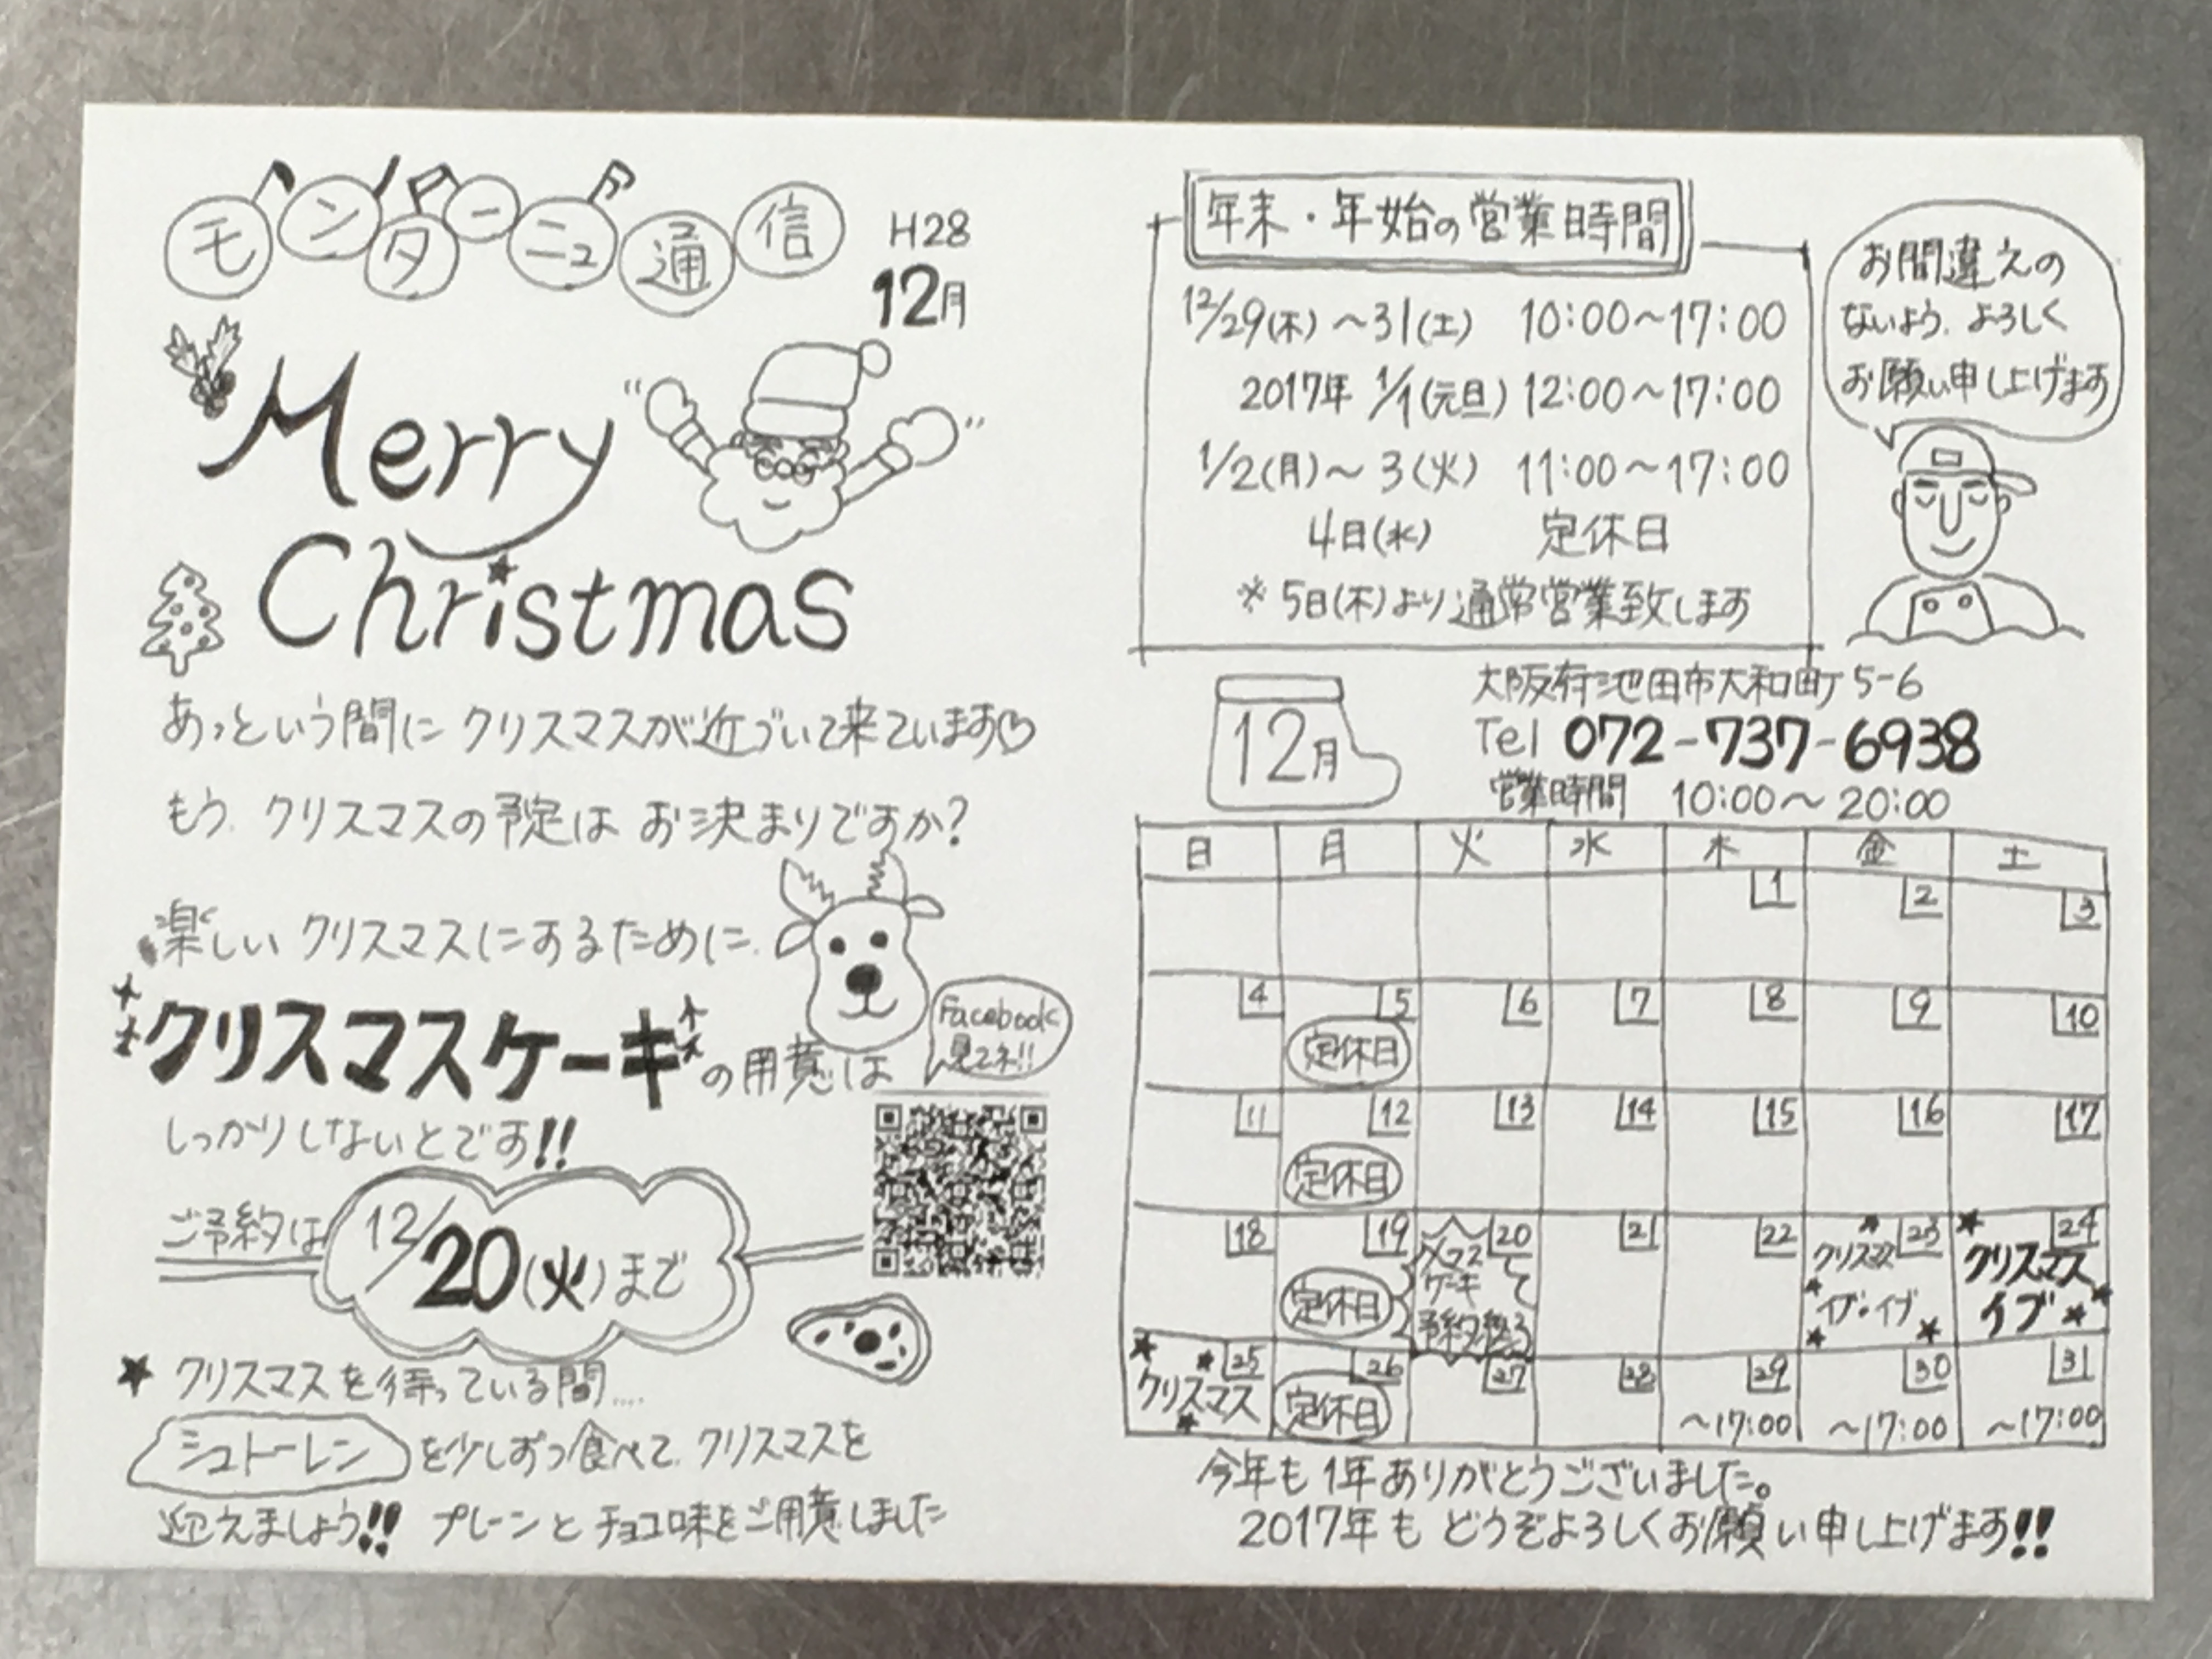 モンターニュ通信
H28
12月
Merry
Christmas
あっという間に クリスマスが近づいて来ています♡
もう、クリスマスの予定は お決まりですか?
楽しい クリスマスにするために、
クリスマスケーキの用意は
しっかりしないとです!!
Facebook
見てネ!!
ご予約は 12/20(火)まで
★ クリスマスを待っている間....
シュトーレン を少しずつ食べて、クリスマスを
迎えましょう!! プレーンと チョコ味をご用意しました
年末・年始の営業時間
12/29(木)~31(土) 10:00~17:00
2017年 1/1(元旦) 12:00~17:00
1/2(月)~3(火) 11:00~17:00
4日(水) 定休日
※5日(木)より通常営業致します
お間違えの
ないよう、よろしく
お願い申し上げます
12月
大阪府池田市大和町5-6
Tel 072-737-6938
営業時間 10:00~20:00
日 月 火 水 木 金 土
1 2 3
4 5 6 7 8 9 10
定休日
11 12 13 14 15 16 17
定休日
18 19 20 21 22 23 24
定休日
ケーキ
予約
クリスマス
イブ・イブ
クリスマス
イブ
25 26 27 28 29 30 31
クリスマス 定休日 ~17:00 ~17:00 ~17:00
今年も1年ありがとうございました。
2017年も どうぞよろしくお願い申し上げます!!